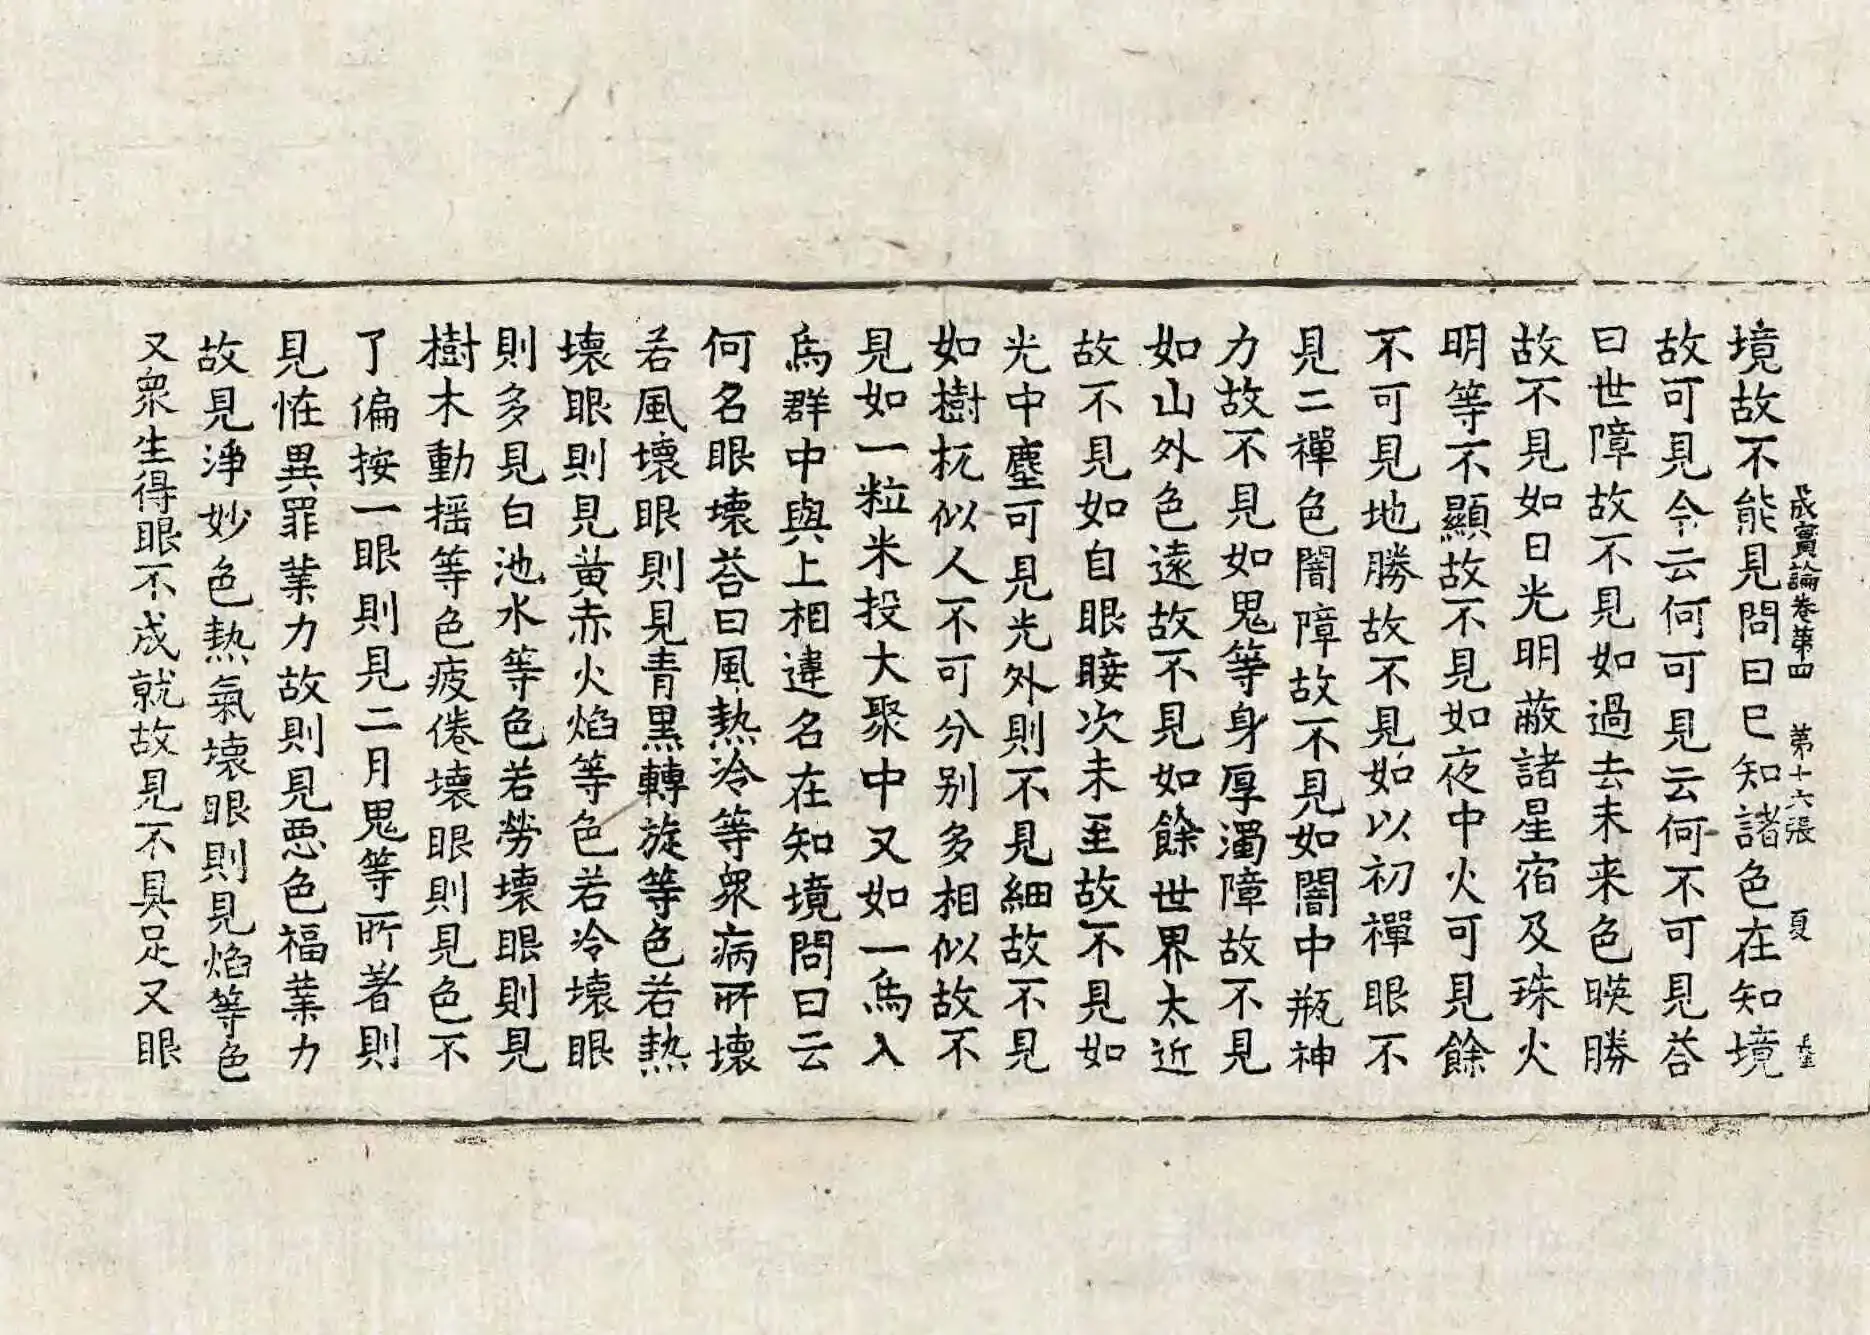 成實論卷第四　第十六張　夏
境故不能見問曰已知諸色在知境
故可見令云何可見云何不可見荅
曰世障故不見如過去未来色暎勝
故不見如日光明蔽諸星宿及珠火
明等不顯故不見如夜中火可見餘
不可見地勝故不見如以初禪眼不
見二禪色闇障故不見如闇中瓶神
力故不見如鬼等身厚濁障故不見
如山外色遠故不見如餘世界太近
故不見如自眼睫次未至故不見如
光中塵可見光外則不見細故不見
如樹杌似人不可分别多相似故不
見如一粒米投大聚中又如一烏入
烏群中與上相違名在知境問曰云
何名眼壞荅曰風熱冷等衆病所壞
若風壞眼則見青黑轉旋等色若熱
壞眼則見黄赤火焰等色若冷壞眼
則多見白池水等色若勞壞眼則見
樹木動揺等色疲倦壞眼則見色不
了偏按一眼則見二月鬼等所著則
見恠異罪業力故則見惡色福業力
故見淨妙色熱氣壞眼則見焰等色
又衆生得眼不成就故見不具足又眼